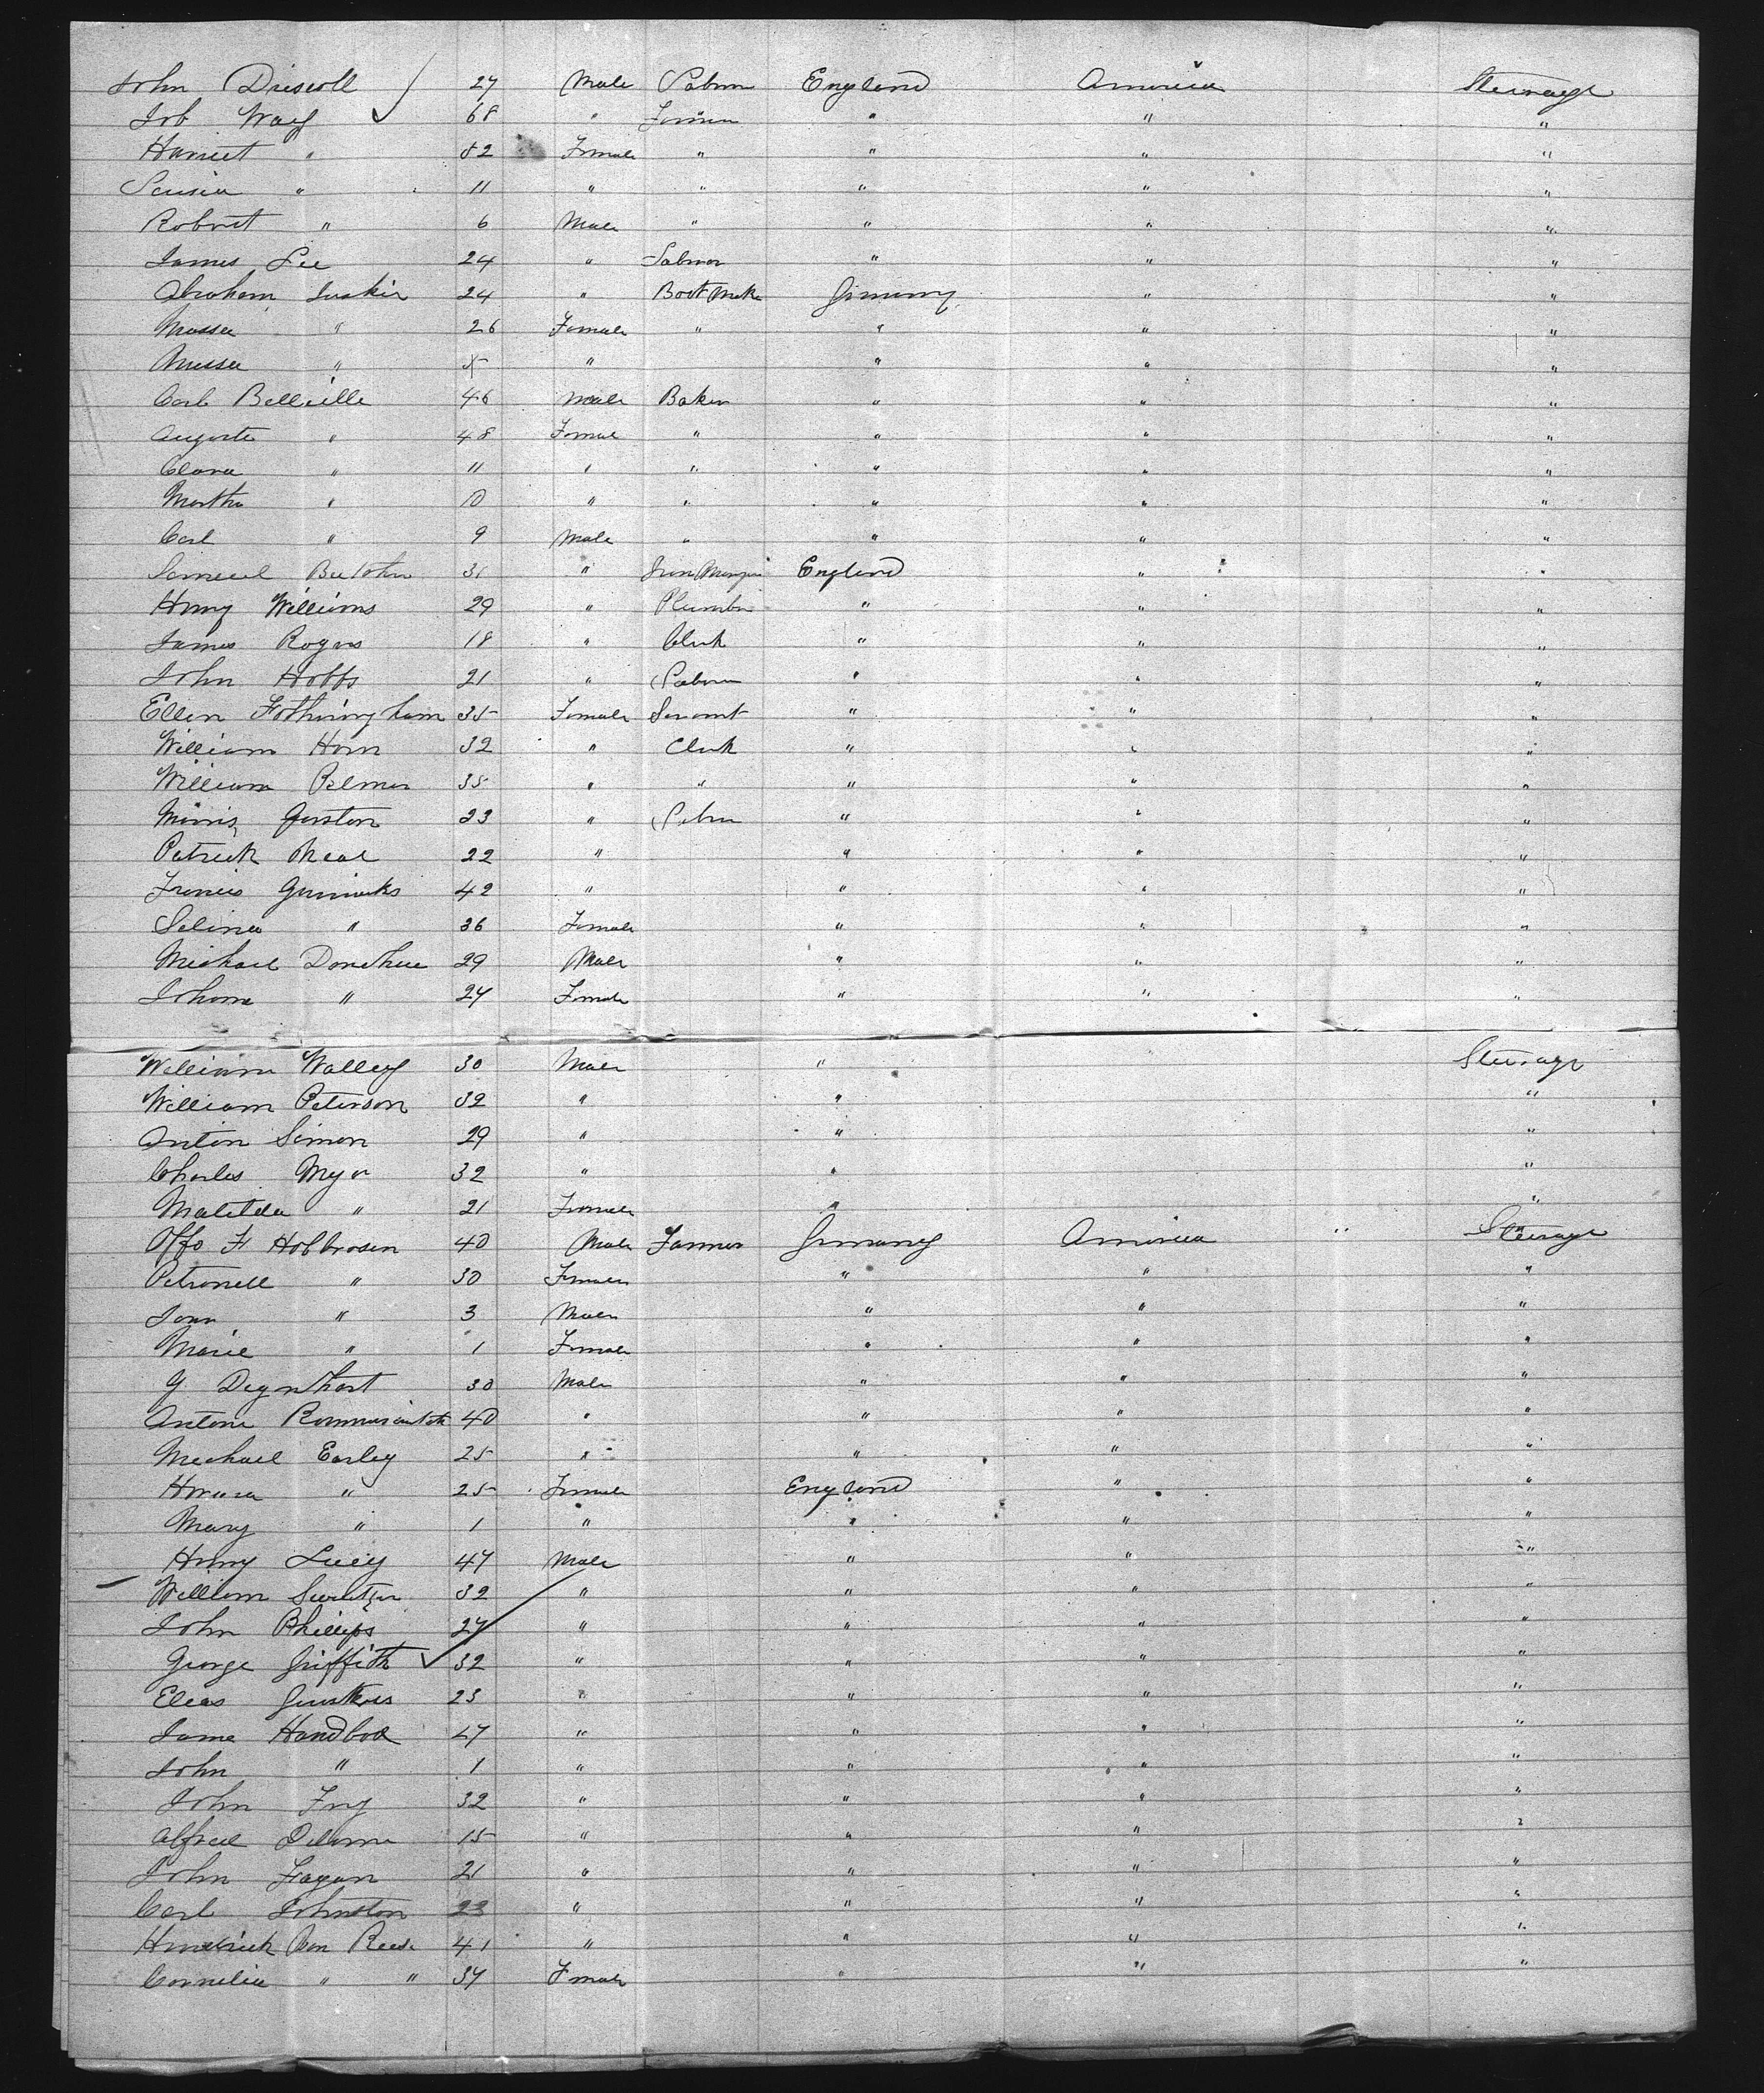 John Driscoll 27 Male Labour England America Steerage
Job Way 68 " Farmer " " "
Harriet " 52 Female " " " "
" 11 " " " "
Robert " 6 Male " " " "
James Lee 24 " Labour " " "
Abraham 24 " Boot Maker Germany " "
" 26 Female " " " "
" " " " "
Carl Belleille 46 Male Baker " " "
Auguste " 48 Female " " " "
Clara " 11 " " " " "
Martha " 10 " " " " "
Carl " 9 Male " " " "
Samuel 31 " England " "
Henry Williams 29 " Plumber " " "
James Rogers 18 " Clerk " " "
John Hobbs 21 " Labour " " "
Ellen Fotheringham 35 Female Servant " " "
William Horn 32 " Clerk " " "
William Palmer 35 " " " " "
Morris 23 " Labour " " "
Patrick Neal 22 " " " "
Francis 42 " " " "
Selina " 36 Female " " "
Michael Donehue 29 Male " " "
Johana " 24 Female " " "
William Walley 30 Male " Steerage
William Peterson 32 " " "
Anton Simon 29 " " "
Charles Myer 32 " " "
Matilda " 21 Female " "
Offo F Holbrosen 40 Male Farmer Germany America " Steerage
Petronell " 30 Female " " "
" 3 Male " " "
Marie " 1 Female " " "
G. Degnhart 30 Male " " "
Antone 40 " " " "
Michael Earley 25 " " " "
" 25 Female England " "
Mary " 1 " " " "
Henry Lucy 47 Male " " "
William 32 " " " "
John Phillips 27 " " " "
George Griffith 32 " " " "
Elias 23 " " " "
Jame Handbod 27 " " " "
John " 1 " " " "
John Fry 32 " " " "
Alfred 15 " " " "
John Fagan 21 " " " "
Carl Johnston 23 " " " "
Hendrick Van Reese 41 " " " "
Cornelia " " 34 Female " " "